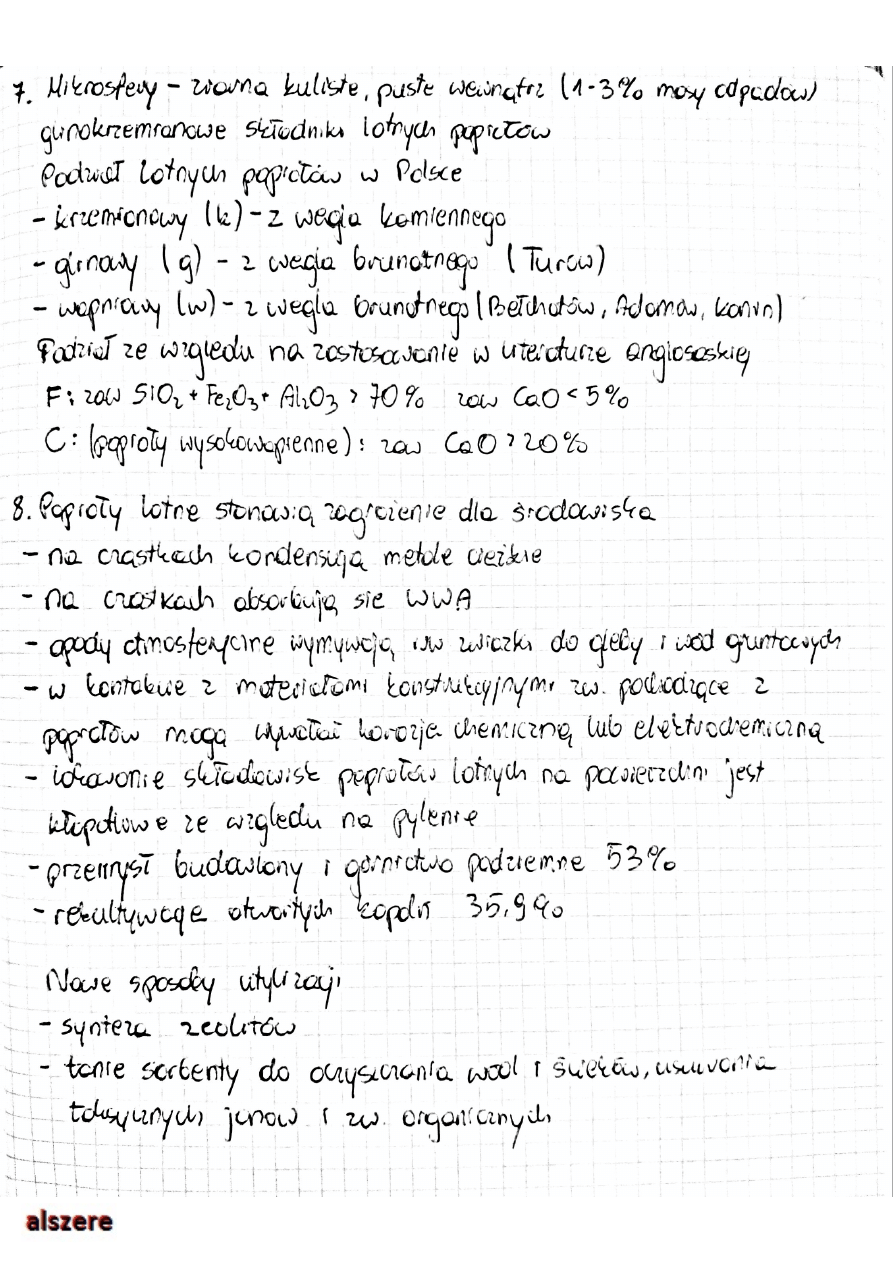 7. Mikrosfery - ziarna kuliste, puste wewnątrz (1-3% masy odpadów)
glinokrzemianowe składniki lotnych popiołów
Podział lotnych popiołów w Polsce
- krzemianowy (k) - z węgla kamiennego
- glinowy (g) - z węgla brunatnego (Turów)
- wapniowy (w) - z węgla brunatnego (Bełchatów, Adamów, Konin)
Podział ze względu na zastosowanie w literaturze anglosaskiej
F: zaw SiO₂ + Fe₂O₃ + Al₂O₃ > 70% zaw CaO < 5%
C: (popioły wysokowapienne): zaw CaO > 20%
8. Popioły lotne stanowią zagrożenie dla środowiska
- na cząstkach kondensują metale ciężkie
- na cząstkach absorbują się WWA
- opady atmosferyczne wymywają ww związki do gleby i wód gruntowych
- w kontakcie z materiałami konstrukcyjnymi zw. pochodzące z
popiołów mogą wywołać korozję chemiczną lub elektrochemiczną
- lokowanie składowisk popiołów lotnych na powierzchni jest
kłopotliwe ze względu na pylenie
- przemysł budowlany i górnictwo podziemne 53%
- rekultywacje otwartych kopalń 35,9%
Nowe sposoby utylizacji
- synteza zeolitów
- tanie sorbenty do oczyszczania wód i ścieków, usuwania
toksycznych jonów i zw. organicznych
alszere